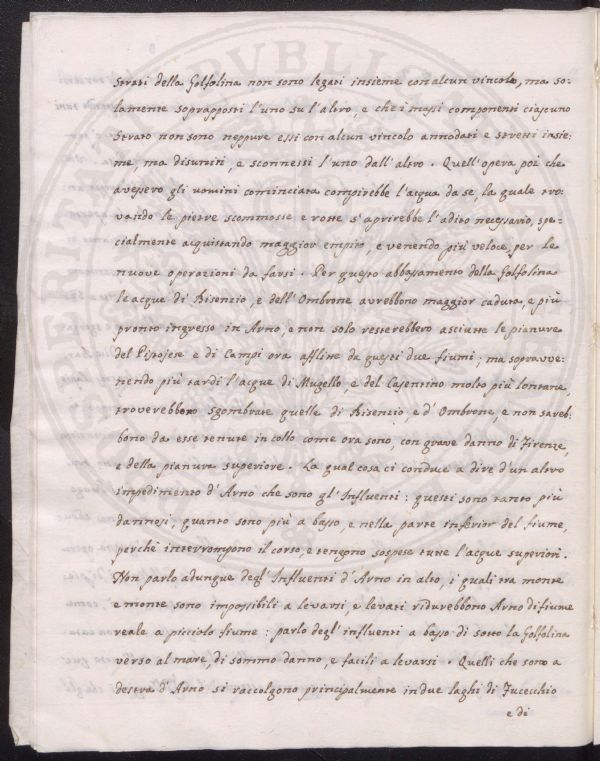 Strati della Golfolina non sono legati insieme con alcun vincolo, ma so-
lamente soprapposti l'uno su l'altro, e che i massi componenti ciascuno
Strato non sono neppure essi con alcun vincolo annodati e stretti insie-
me, ma disuniti, e sconnessi l'uno dall'altro. Quell'opera poi che
avessero gli uomini cominciata compirebbe l'acqua da se, la quale tro-
vando le pietre scommosse e rotte s'aprirebbe l'adito necessario, spe-
cialmente acquistando maggior empito, e venendo più veloce, per le
nuove operazioni da farsi. Per questo abbassamento della Golfolina
le acque di Bisenzio, e dell'Ombrone avrebbono maggior caduta, e più
pronto ingresso in Arno, e non solo resterebbero asciutte le pianure
del Pistojese e di Campi ora afflitte da questi due fiumi; ma sopravve-
nendo più tardi l'acque di Mugello, e del Casentino molto più lontane,
troverebbero sgombrate quelle di Bisenzio e d'Ombrone, e non sareb-
bono da esse tenute in collo come ora sono, con grave danno di Firenze,
e della pianura superiore. La qual cosa ci conduce a dire d'un altro
impedimento d'Arno che sono gl'Influenti: questi sono tanto più
dannosi, quanto sono più a basso, e nella parte inferior del fiume,
perchè interrompono il corso, e tengono sospese tutte l'acque superiori.
Non parlo adunque degl'Influenti d'Arno in alto, i quali tra monte
e monte sono impossibili a levarsi, e levati ridurebbono Arno di fiume
reale a picciolo fiume: parlo degl'influenti a basso di sotto la Golfolina
verso al mare, di sommo danno, e facili a levarsi. Quelli che sono a
destra d'Arno si raccolgono principalmente in due laghi di Fucecchio
e di